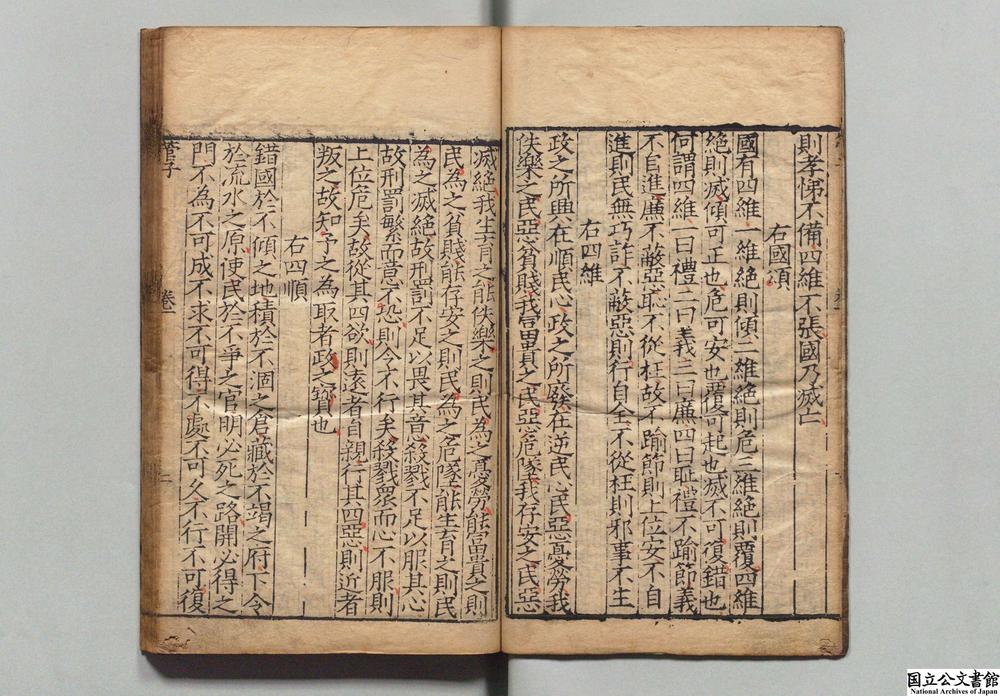 則孝悌不備四維不張國乃滅亡
右國頌
國有四維一維絶則傾二維絶則危三維絶則覆四維
絶則滅傾可正也危可安也覆可起也滅不可復錯也
何謂四維一曰禮二曰義三曰廉四曰耻禮不踰節義
不自進廉不蔽惡恥不從枉故不踰節則上位安不自
進則民無巧詐不蔽惡則行自全不從枉則邪事不生
右四維
政之所興在順民心政之所廢在逆民心民惡憂勞我
佚樂之民惡貧賤我富貴之民惡危墜我存安之民惡
滅絶我生育之能佚樂之則民為之憂勞能富貴之則
民為之貧賤能存安之則民為之危墜能生育之則民
為之滅絶故刑罰不足以畏其意殺戮不足以服其心
故刑罰繁而意不恐則令不行矣殺戮衆而心不服則
上位危矣故從其四欲則遠者自親行其四惡則近者
叛之故知予之為取者政之寶也
右四順
錯國於不傾之地積於不涸之倉藏於不竭之府下令
於流水之原使民於不爭之官明必死之路開必得之
門不為不可成不求不可得不處不可久不行不可復
管子
卷一
二
国立公文書館
National Archives of Japan